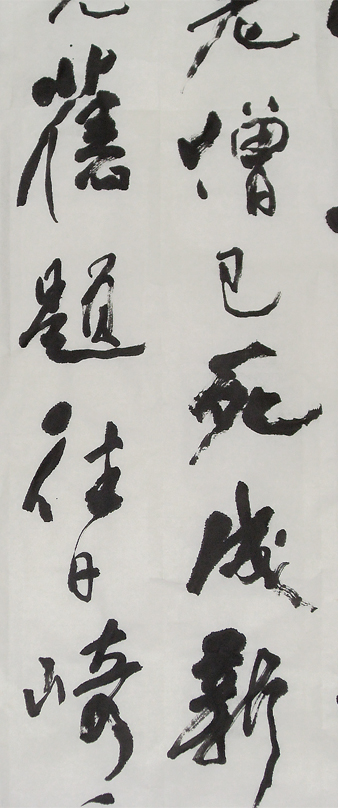 老僧已死成新
舊題往日崎